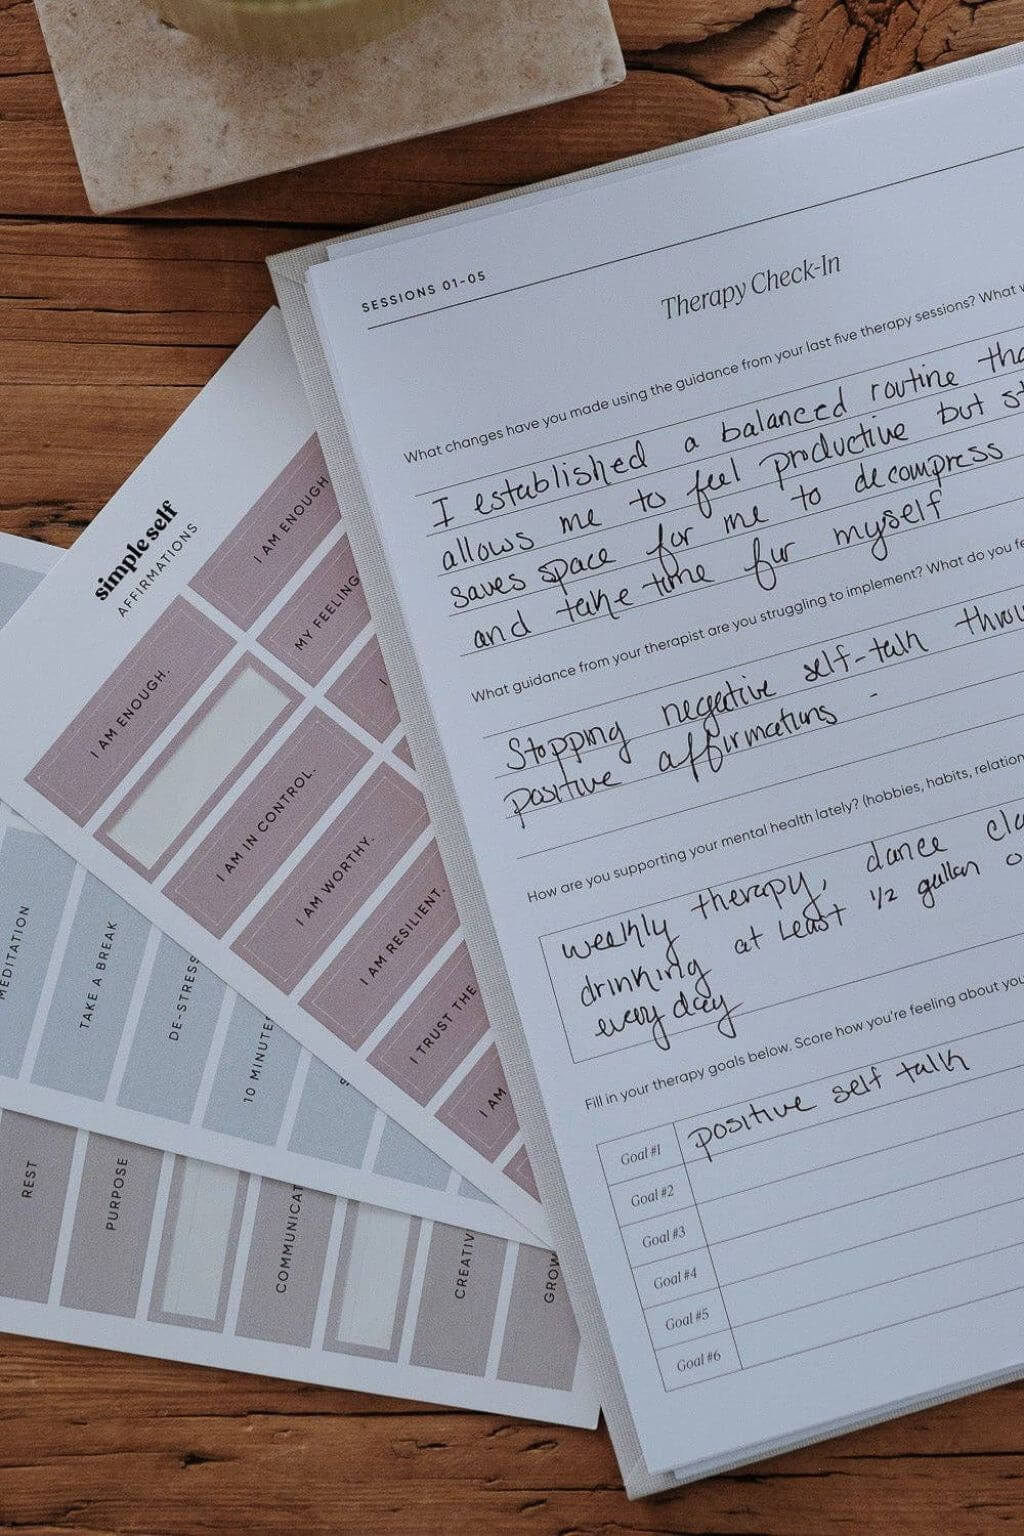 SESSIONS 01-05
Therapy Check-In
What changes have you made using the guidance from your last five therapy sessions? What
I established a balanced routine
allows me to feel productive but
saves space for me to decompress
and take time for myself
What guidance from your therapist are you struggling to implement? What do you
Stopping negative self-talk
positive affirmations -
How are you supporting your mental health lately? (hobbies, habits,
weekly therapy, dance
drinking at least 1/2 gallon
every day
Fill in your therapy goals below. Score how you're feeling about
Goal #1 positive self talk
Goal #2
Goal #3
Goal #4
Goal #5
Goal #6
simple self
AFFIRMATIONS
I AM ENOUGH
MY FEELING
I
I AM ENOUGH.
I AM IN CONTROL.
I AM WORTHY.
I AM RESILIENT.
I TRUST THE
I AM
MEDITATION
TAKE A BREAK
DE-STRESS
10 MINUTE
REST
PURPOSE
COMMUNICAT
CREATIV
GROW